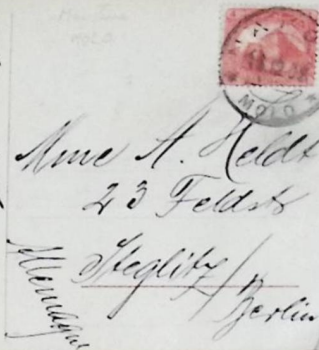 MOLO
Mme A. Heldt
23 Feldstr
Steglitz/
Berlin
Allemagne